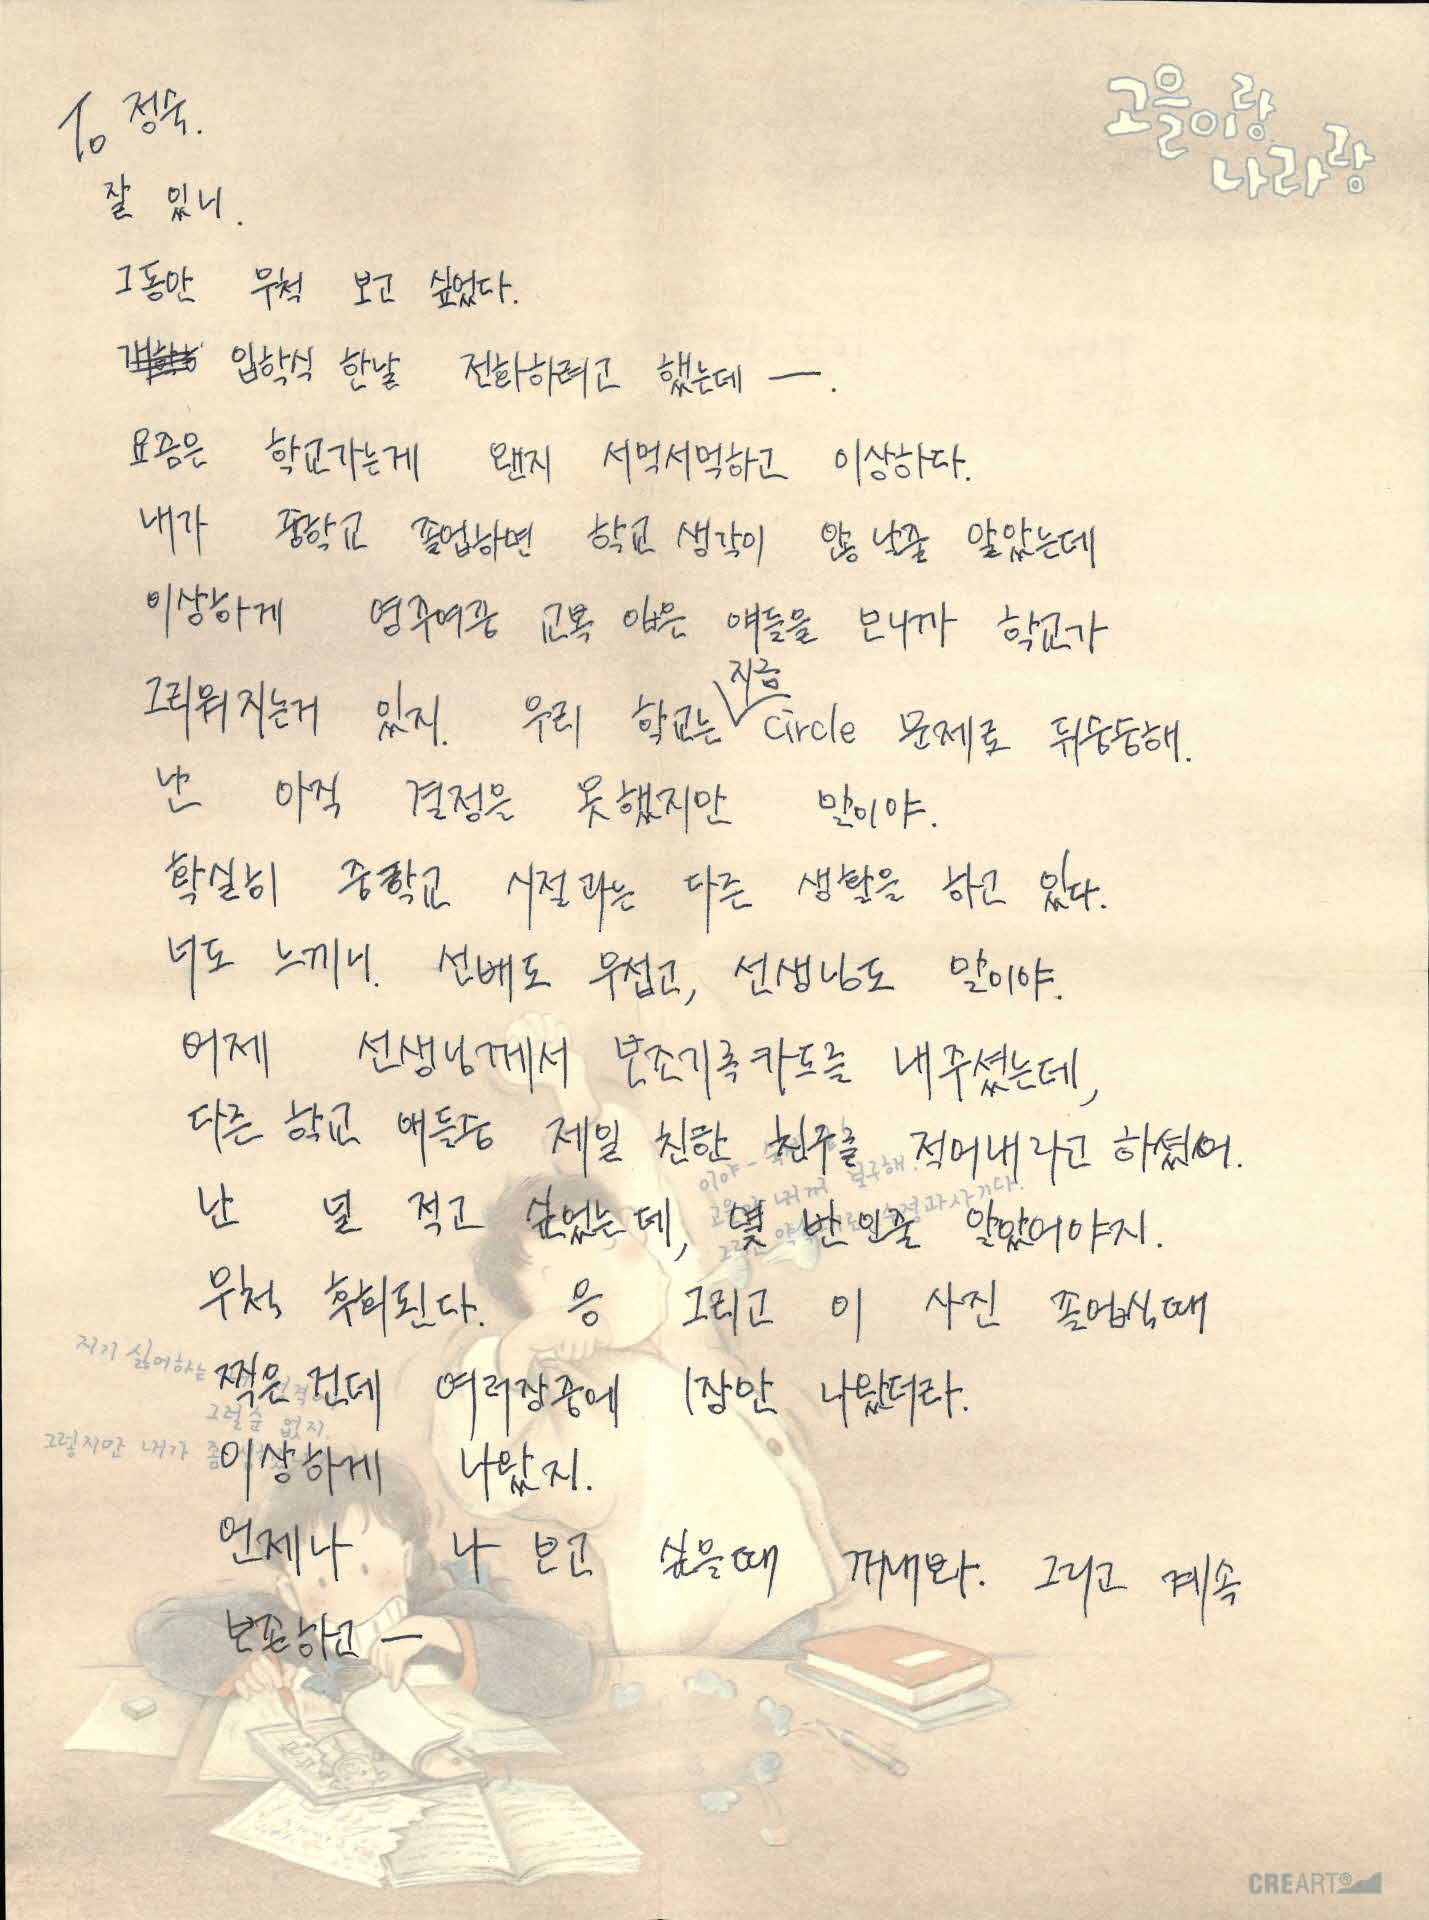 고을이랑
나라랑
To 정숙.
잘 있니.
그동안 무척 보고 싶었다.
입학식 한날 전화하려고 했는데 —.
요즘은 학교가는게 왠지 서먹서먹하고 이상하다.
내가 중학교 졸업하면 학교 생각이 않 날줄 알았는데
이상하게 영주여중 교복 입은 얘들을 보니까 학교가
그리워지는거 있지. 우리 학교는 지금 circle 문제로 뒤숭숭해.
난 아직 결정을 못했지만 말이야.
확실히 중학교 시절과는 다른 생활을 하고 있다.
너도 느끼니. 선배도 무섭고, 선생님도 말이야.
어제 선생님께서 보조기록카드를 내주셨는데,
다른 학교 애들중 제일 친한 친구를 적어내라고 하셨어.
난 널 적고 싶었는데, 몇 반인줄 알았어야지.
무척 후회된다. 응 그리고 이 사진 졸업식때
찍은건데 여러장중에 1장만 나왔더라.
이상하게 나왔지.
언제나 나 보고 싶을때 꺼내봐. 그리고 계속
보존하고 —
저기 싫어하는
그럴순 없지.
그렇지만 내가 좀
CREART